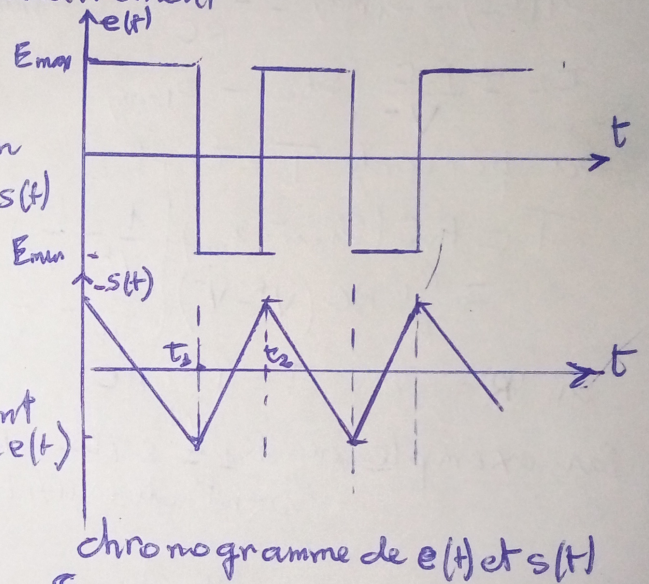 e(t)
Emax
t
s(t)
Emin
s(t)
t1
t2
t
e(t)
chronogramme de e(t) et s(t)